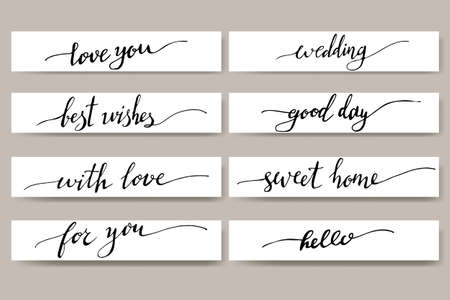 love you
wedding
best wishes
good day
with love
sweet home
for you
hello